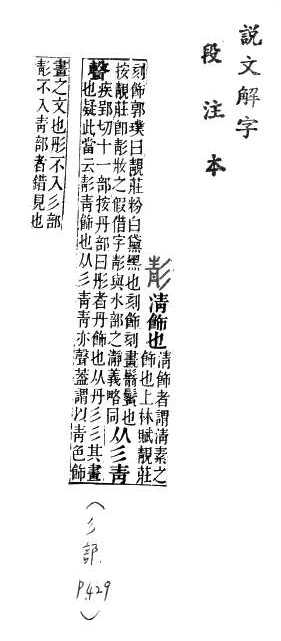 說文解字
段注本
㣋清飾也
清飾者謂清素之
飾也上林賦靚莊
刻飾郭璞曰靚莊粉白黛黑也刻飾刻畫鬋鬢也
按靚莊即㣋妝之假借字㣋與水部之瀞義略同
从彡靑
聲
疾郢切十一部按丹部曰彤者丹飾也从丹彡彡其畫
也疑此當云㣋靑飾也从彡靑靑亦聲葢謂㠯靑色飾
畫之文也彤不入彡部
㣋不入靑部者錯見也
(彡部 P.429)